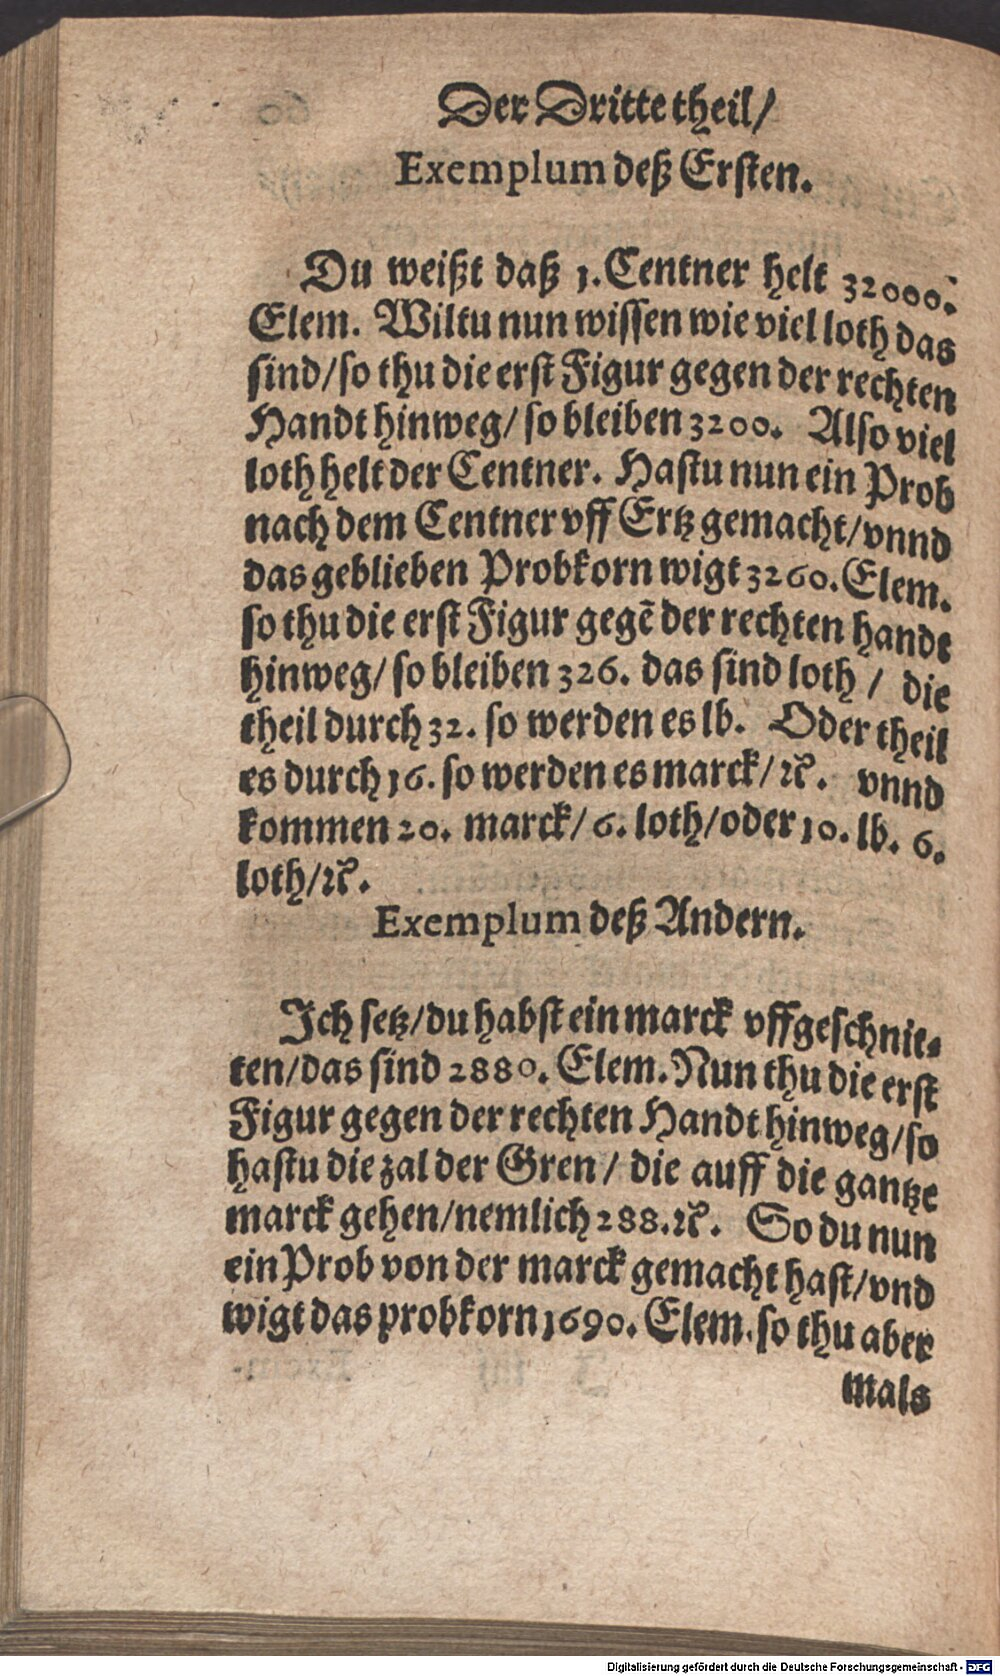 Der Dritte theil/
Exemplum deß Ersten.
Du weißt daß 1. Centner helt 32000.
Elem. Wiltu nun wissen wie viel loth das
sind/so thu die erst Figur gegen der rechten
Handt hinweg/ so bleiben 3200. Also viel
loth helt der Centner. Hastu nun ein Prob
nach dem Centner vff Ertz gemacht/vnnd
das geblieben Probkorn wigt 3260. Elem.
so thu die erst Figur gegē der rechten handt
hinweg/ so bleiben 326. das sind loth / die
theil durch 32. so werden es lb. Oder theil
es durch 16. so werden es marck/ ꝛc. vnnd
kommen 20. marck/ 6. loth/oder 10. lb. 6.
loth/ꝛc.
Exemplum deß Andern.
Ich setz/du habst ein marck vffgeschnie-
ten/das sind 2880. Elem. Nun thu die erst
Figur gegen der rechten Handt hinweg/so
hastu die zal der Gren/ die auff die gantze
marck gehen/nemlich 288.ꝛc. So du nun
ein Prob von der marck gemacht hast/vnd
wigt das probkorn 1690. Elem. so thu aber
mals
Digitalisierung gefördert durch die Deutsche Forschungsgemeinschaft - DFG